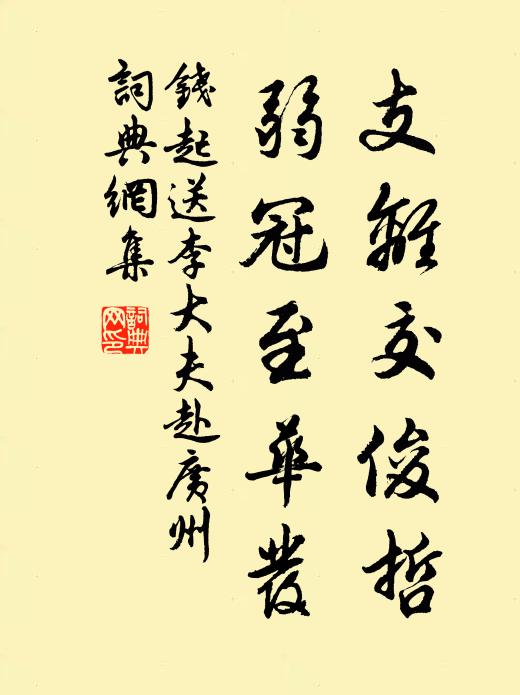 支離交俊哲
弱冠至華發
錢起送李大夫赴廣州
詞典網集
詞典网印